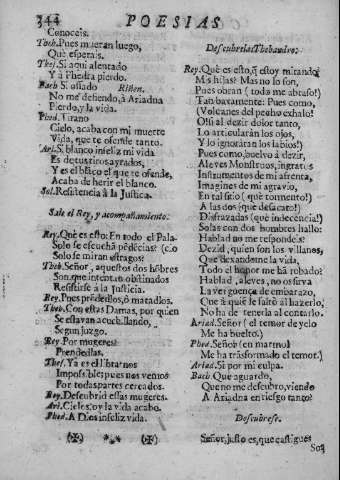 344 POESIAS
Conoceis.
Teb. Pues mueran luego,
Què esperais.
Thes. Si aqui alentado
Y à Phedra pierdo.
Bach. Si ossado Riñen.
No me defiendo, à Ariadna
Pierdo, y la vida.
Phed. Tirano
Cielo, acaba con mi muerte
Vida, que te ofende tanto.
Ari. Si blanco infeliz mi vida
Es de tus tiros ayrados,
Y es el blāco el que te ofende,
Acaba de herir el blanco.
Sol. Resistencia à la Justicia.
Sale el Rey, y acompañamiento.
Rey. Què es esto: En todo el Pala-
Solo se escuchā pēdēcias? (cio
Solo se miran estragos:
Theb. Señor, aquestos dos hōbres
Son, que intentan obstinados
Resistirse à la Justicia.
Rey. Pues prēdedlos, ò matadlos.
Theb. Con estas Damas, por quien
Se estavan acuchillando,
Segun juzgo.
Rey. Por mugeres?
Prendedlas.
Thes. Ya el librarnos
Impossible; pues nos vemos
Por todas partes cercados.
Rey. Descubrid essas mugeres.
Ari. Cielos, oy la vida acabo.
Phed. A Dios infeliz vida.
Descubrelas Thebandro.
Rey. Què es esto, q̃ estoy mirando?
Mis hijas! Mas no lo son,
Pues obran (toda me abraso!)
Tan baxamente: Pues como,
(Volcanes del pecho exhalo!
O si al dezir dolor tanto,
Lo articularàn los ojos,
Y lo ignoràran los labios!)
Pues como, buelvo à dezir,
Aleves Monstruos, ingratos
Instrumentos de mi afrenta,
Imagines de mi agravio,
En tal sitio (què tormento!)
A las dos (què desacato!)
Disfrazadas (què indecencia!)
Solas con dos hombres hallo:
Hablad no me respondeis?
Dezid, quien son los villanos,
Que dexandome la vida,
Todo el honor me hā robado?
Hablad, aleves, no os sirva
La verguença de embarazo,
Que à quiē le faltò al hazerlo,
No ha de tenerla al contarlo.
Ariad. Señor (el temor de yelo
Me ha buelto.)
Phed. Señor (en marmol
Me ha transformado el temor.)
Ariad. Si por mi culpa.
Bach. Que aguardo,
Que no me descubro, viendo
A Ariadna en riesgo tanto?
Descubrese.
Señor, justo es, que castigues
Sos